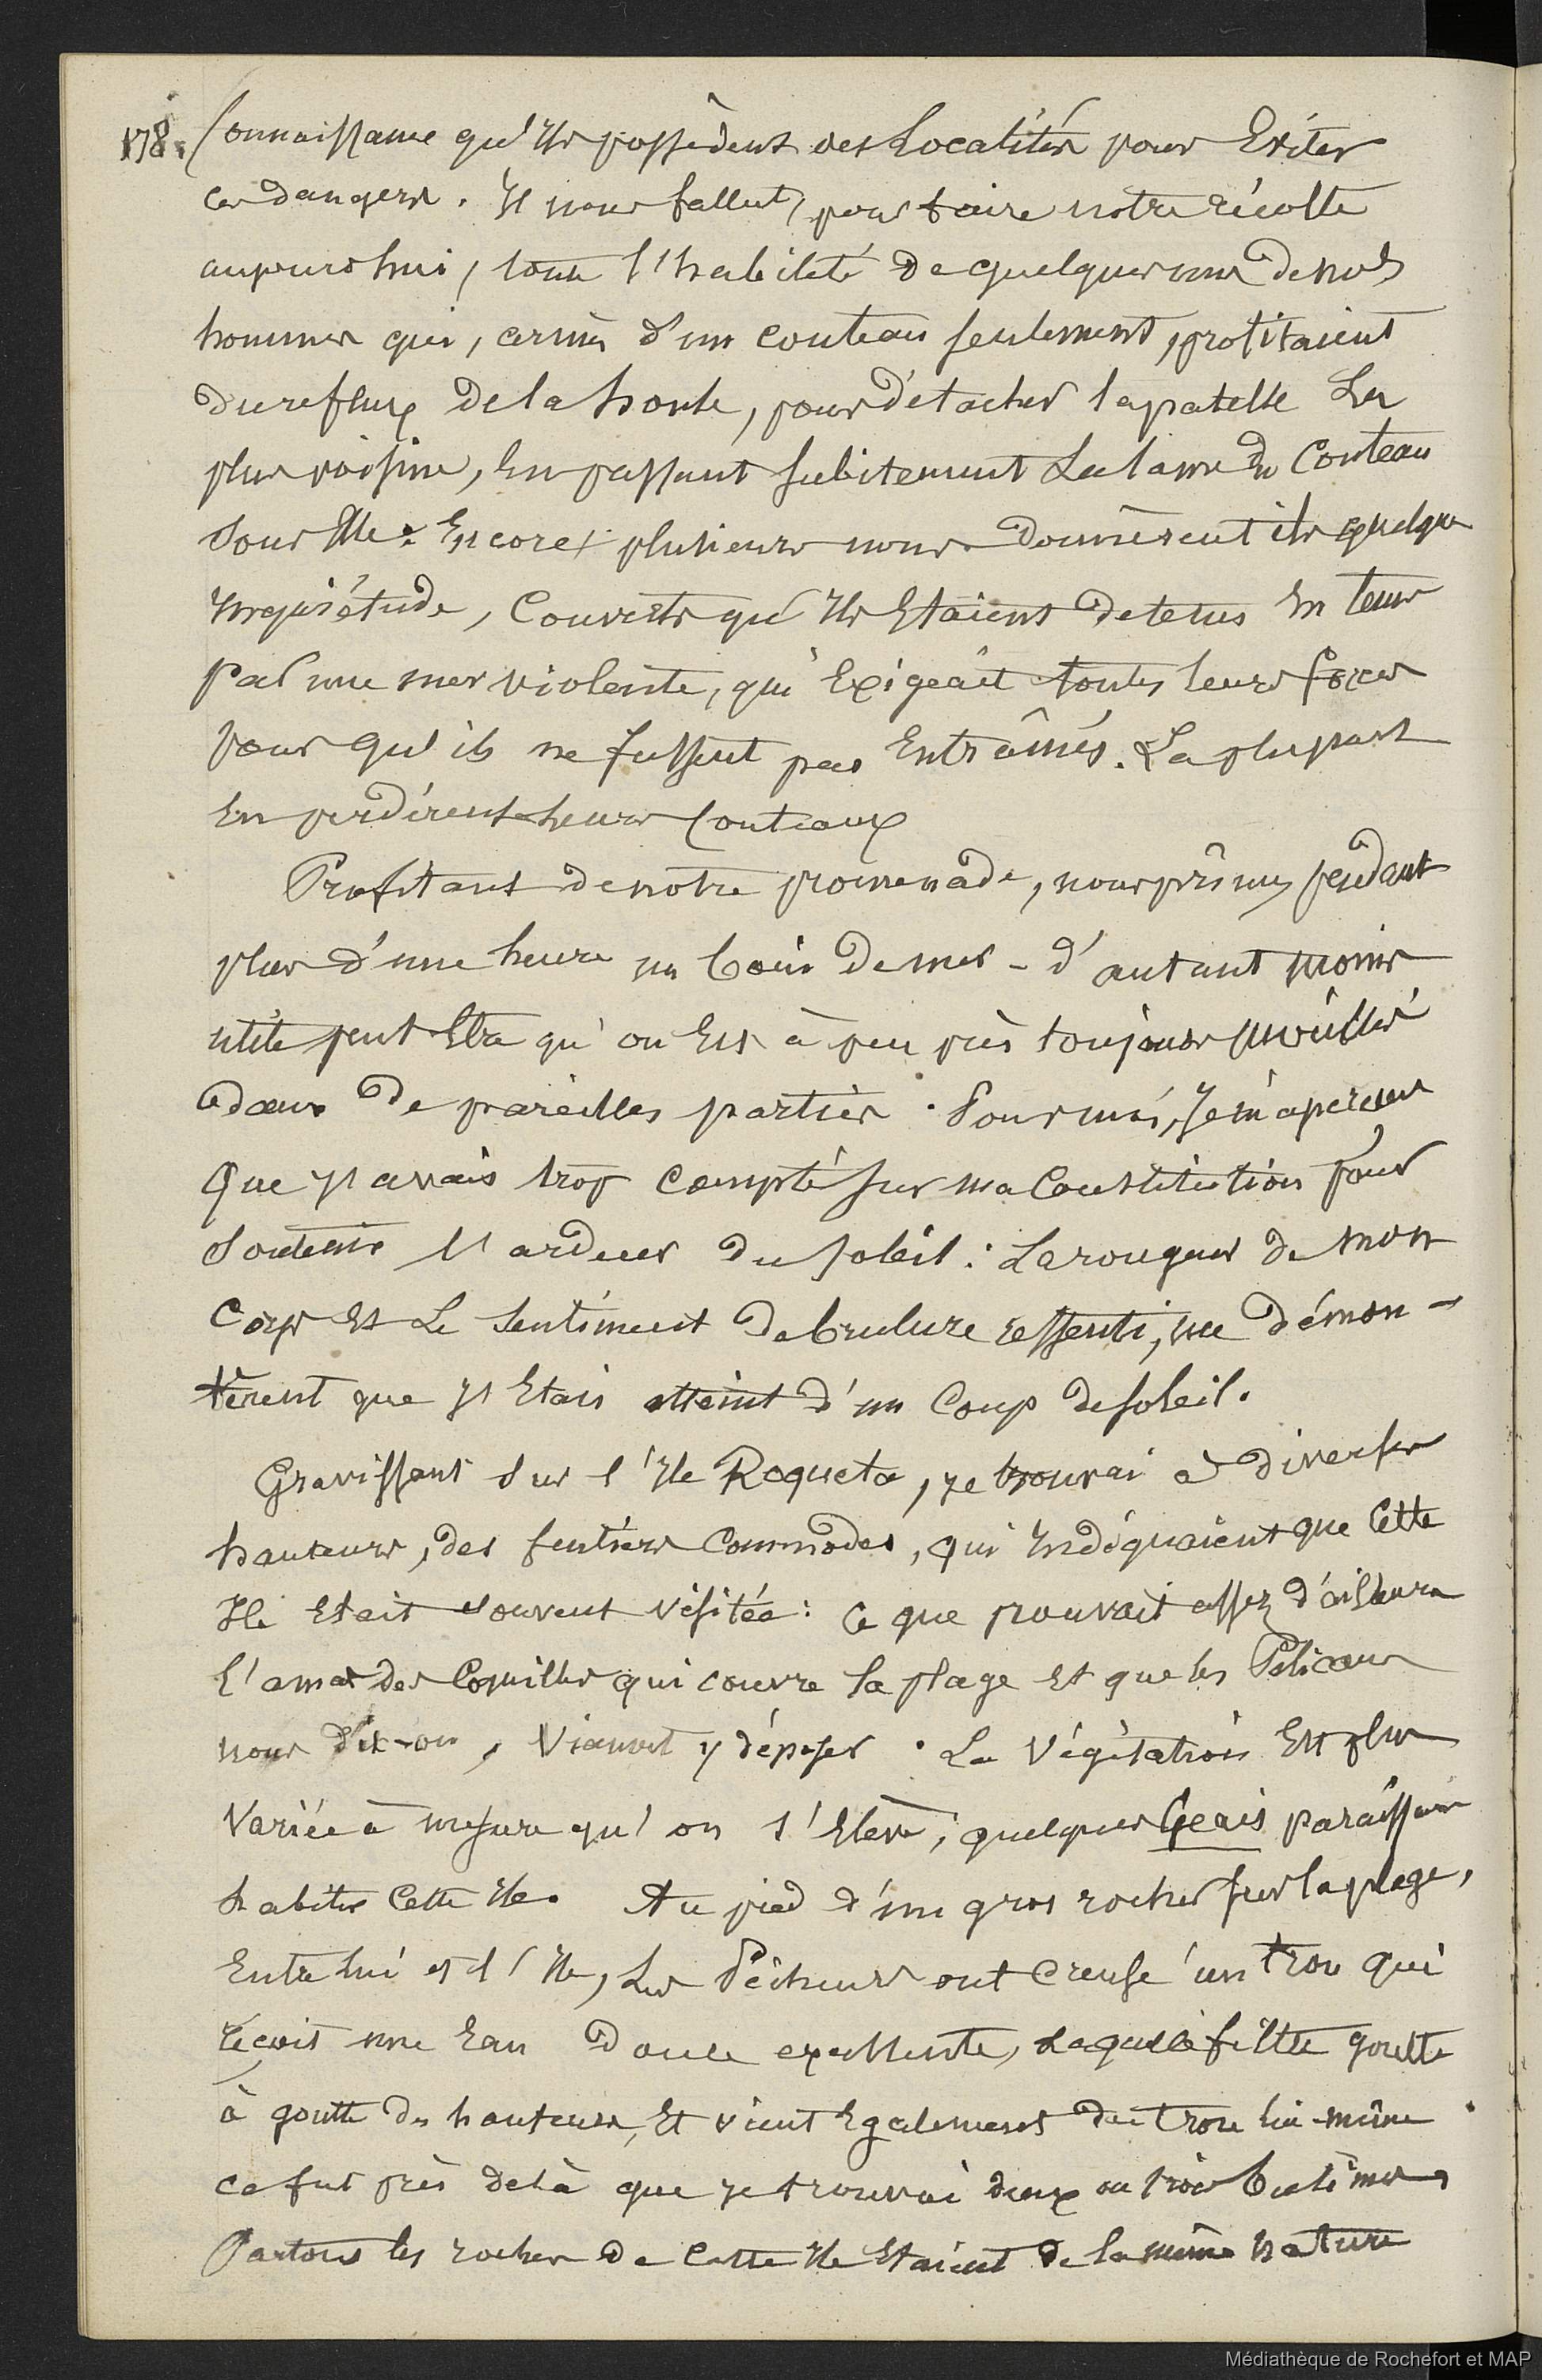 178. Connaissance qu'ils possèdent des Localités pour Eviter
ces dangers. Il nous fallut, pour faire notre récolte
aujourd'hui, toute l'habileté de quelques uns de nos
hommes qui, armés d'un couteau seulement, profitaient
du reflux de la houle, pour détacher la patelle La
plus voisine, En passant subitement La lame du Couteau
sous Elle. Encore plusieurs nous donnèrent ils quelque
Inquiétude, Couverts qu'Ils Etaient
par une mer violente, qui Exigeait toutes leurs forces
pour qu'ils ne fussent pas Entraînés. La plupart
En perdirent leurs Couteaux
Profitant de notre promenade, nous prîmes pendant
plus d'une heure un bain de mer - d'autant moins
utile peut Etre qu'on Est à peu près toujours mouillé
dans de pareilles parties. Pour moi, Je m'aperçus
Que J'avais trop compté sur ma Constitution pour
Soutenir l'ardeur du soleil : La rougeur de mon
Corps Et Le Sentiment de brulure ressenti, me démon-
trèrent que J'Etais atteint d'un Coup de soleil.
Gravissant sur l'Ile Roqueta, je trouvai à diverses
hauteurs, des sentiers commodes, qui Indiquaient que Cette
Ile Etait souvent visitée : Ce que prouvait assez d'ailleurs
L'amas des Coquilles qui couvre la plage Et que les Pélicans
nous dit-on, viennent y déposer. La Végétation Est plus
Variée à mesure qu'on s'Elève; quelques Geais paraissaient
habiter Cette Ile. Au pied d'un gros rocher sur la plage,
Entre lui et l'Ile, Les Pêcheurs ont Creusé un trou qui
reçoit une Eau Douce excellente, Laquelle filtre goutte
à goutte des hauteurs, Et vient Egalement du trou lui-même.
Ce fut près delà que je trouvai deux ou trois bulimes,
Partout les rochers de Cette Ile Etaient de la même nature
Médiathèque de Rochefort et MAP